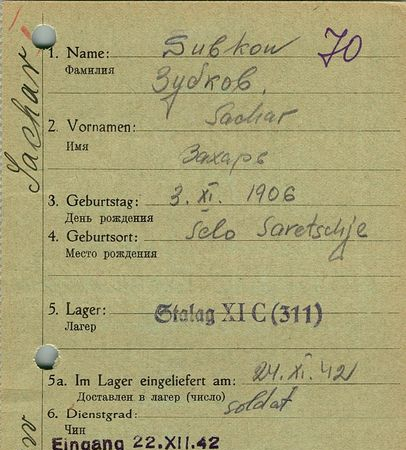 Sachar
1. Name: Subkow 70
Фамилия Зубков,
Sachar
2. Vornamen:
Имя Захаръ
3. Geburtstag: 3. XI. 1906
День рождения
4. Geburtsort: Selo Saretschje
Место рождения
5. Lager: Stalag XI C (311)
Лагерь
5a. Im Lager eingeliefert am: 24. XI. 42
Доставлен в лагерь (число)
6. Dienstgrad: soldat
Чин
Eingang 22.XII.42